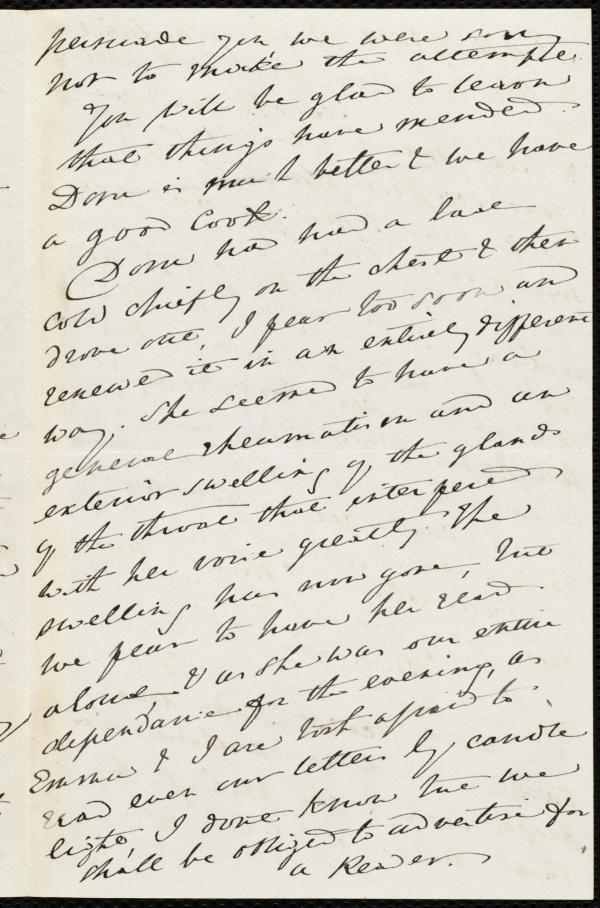 persuade you we were sorry
not to make the attempt.
You will be glad to learn
that things have mended.
Dora is much better & we have
a good Cook.
Dora has had a bad
cold chiefly on the chest & then
drove out, I fear too soon and
renewed it in an entirely different
way. She seemed to have a
general rheumatism and an
exterior swelling of the glands
of the throat that interfered
with her voice greatly. The
swelling has now gone, but
we fear to have her read
aloud, & as she was our entire
dependance for the evening, as
Emma & I are both afraid to
read even our letters by candle
light, I dont know but we
shall be obliged to advertise for
a Reader.